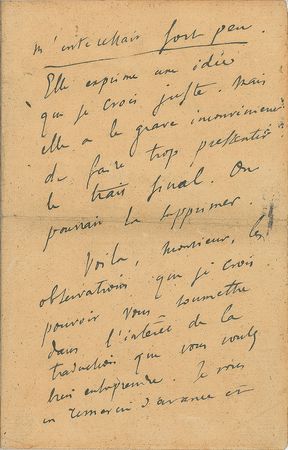 m'entendais fort peu.
Elle exprime une idée
que je crois juste. Mais
elle a le grave inconvénient
de faire trop pressentir
le trait final. On
pourrait la supprimer.
Voilà, monsieur, les
observations que je crois
pouvoir vous soumettre
dans l'intérêt de la
traduction que vous voulez
bien entreprendre. Je vous
en remercie d'avance et